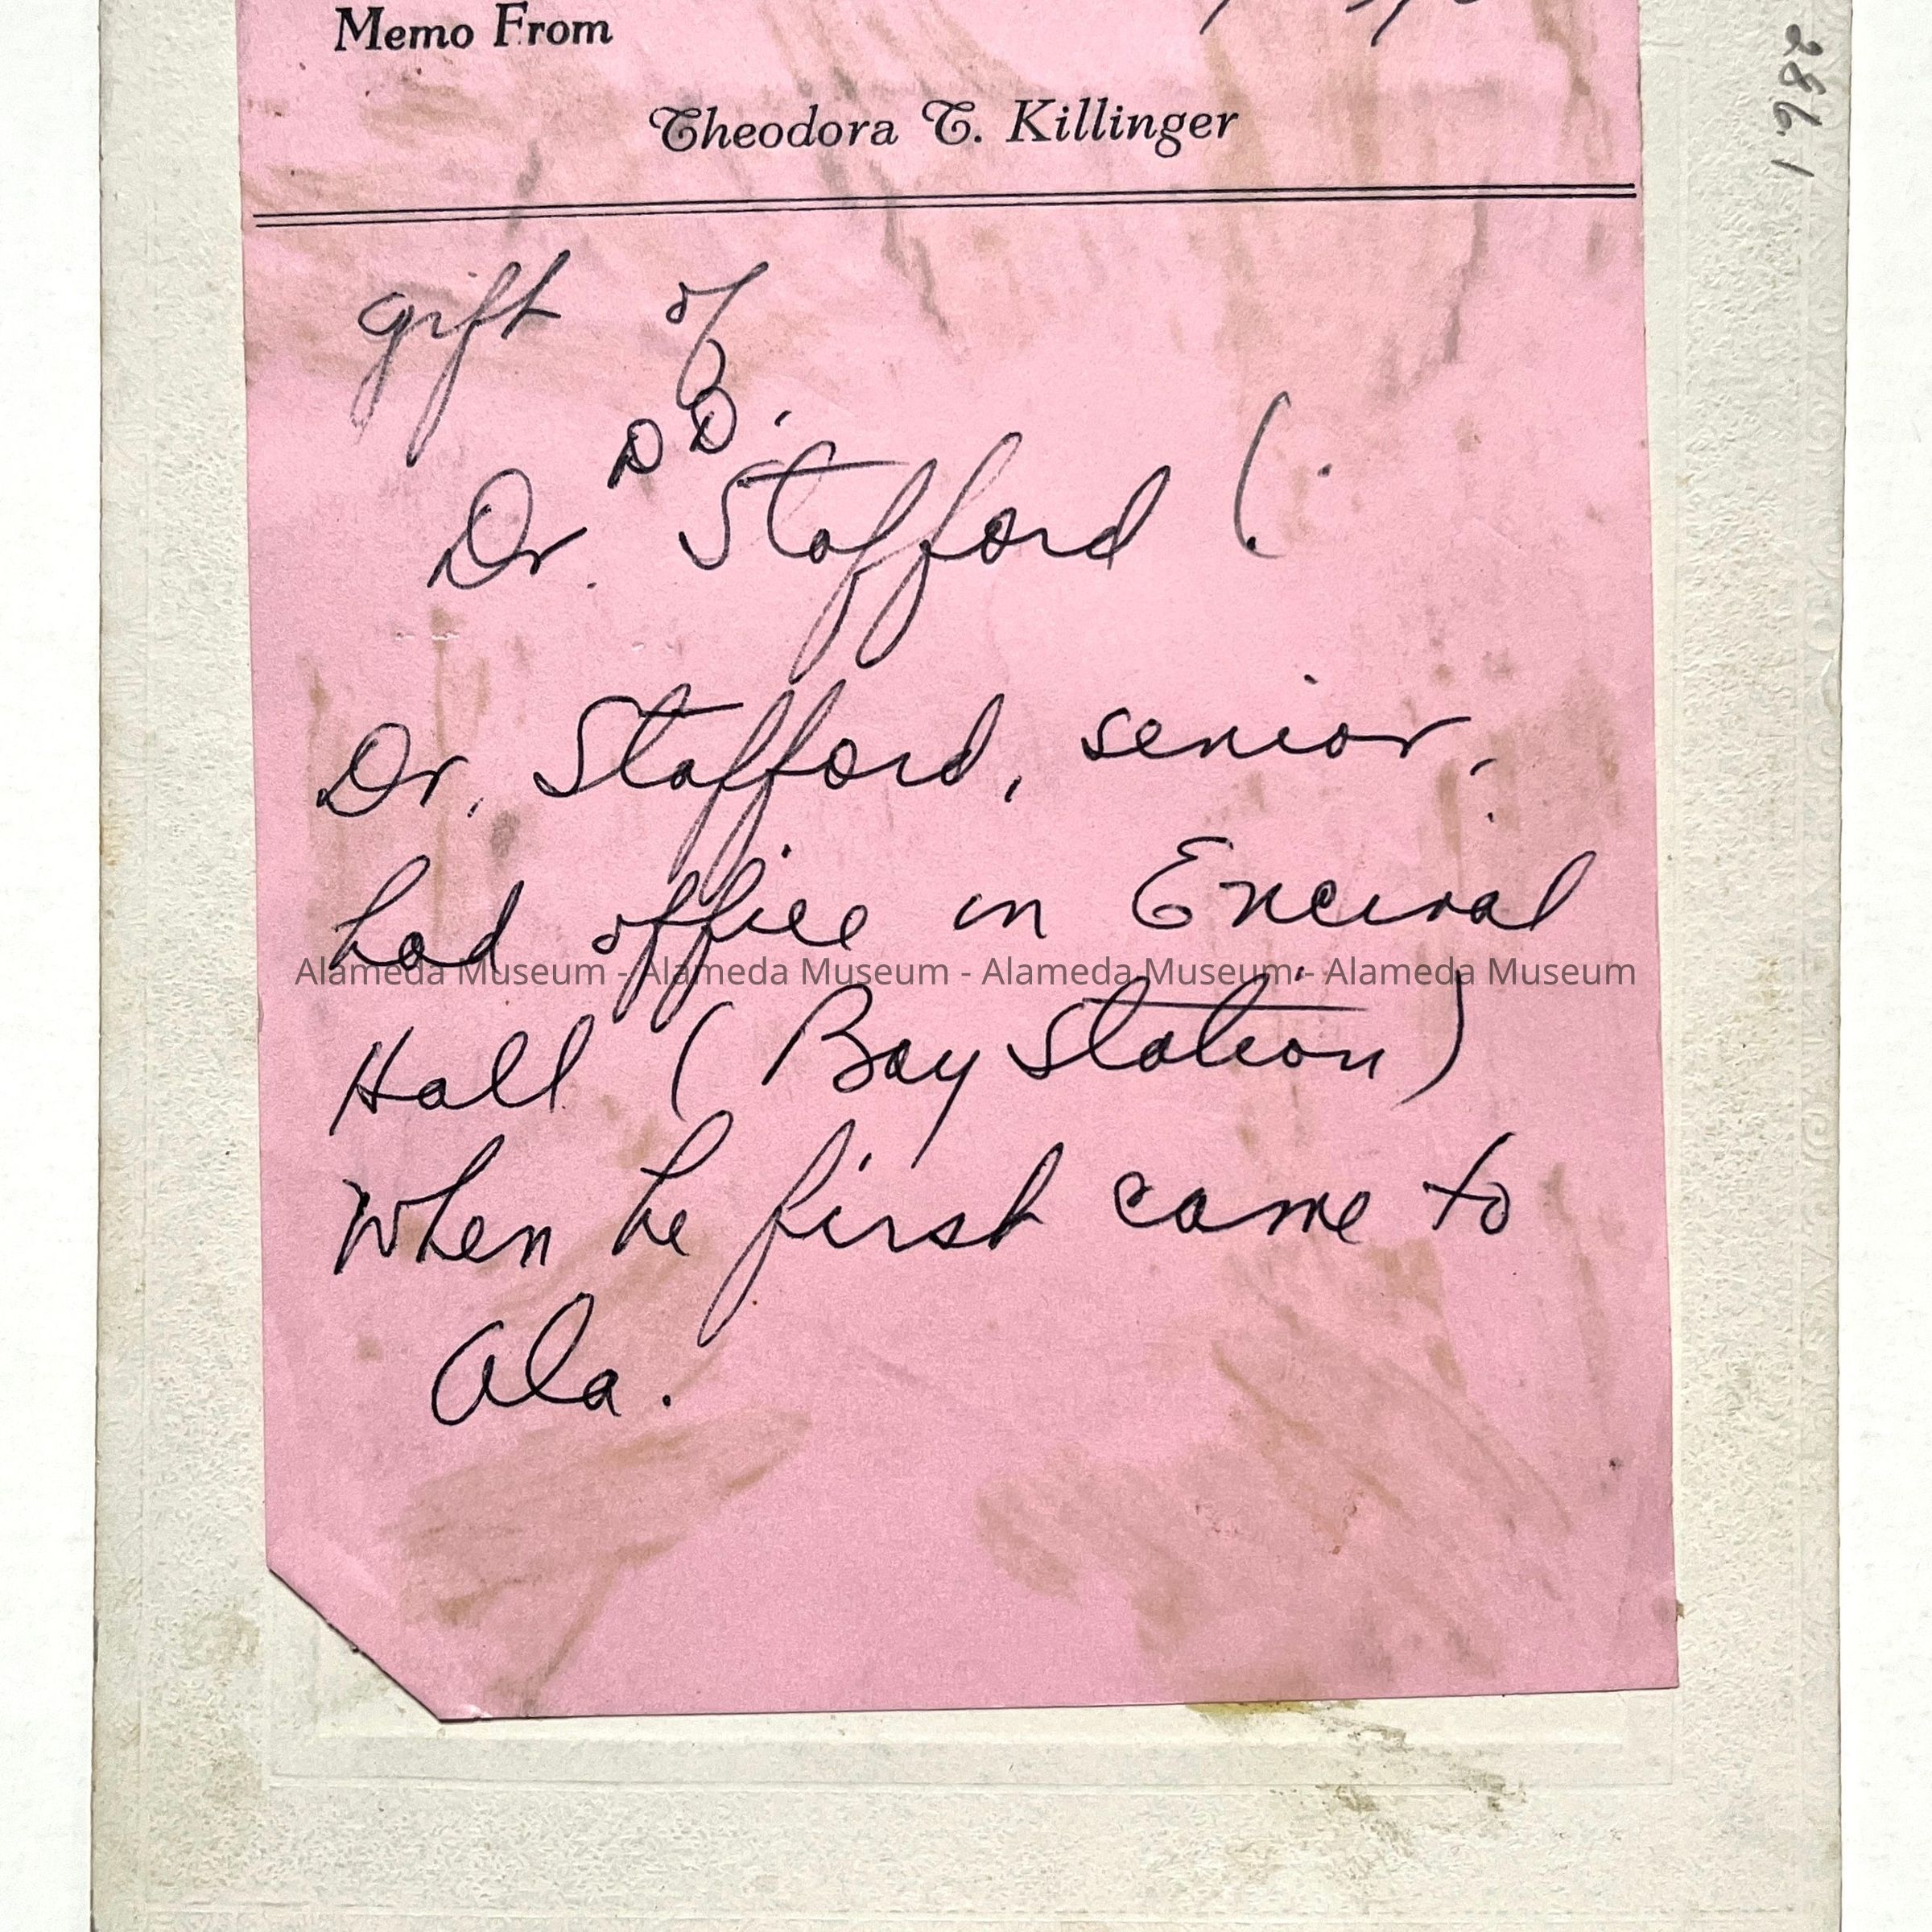 Memo From
Theodora T. Killinger
gift of
D D.
Dr. Stafford (.
Dr. Stafford, senior,
had office in Encinal
Hall (Bay Station)
when he first came to
Ala.
286.1
Alameda Museum - Alameda Museum - Alameda Museum - Alameda Museum